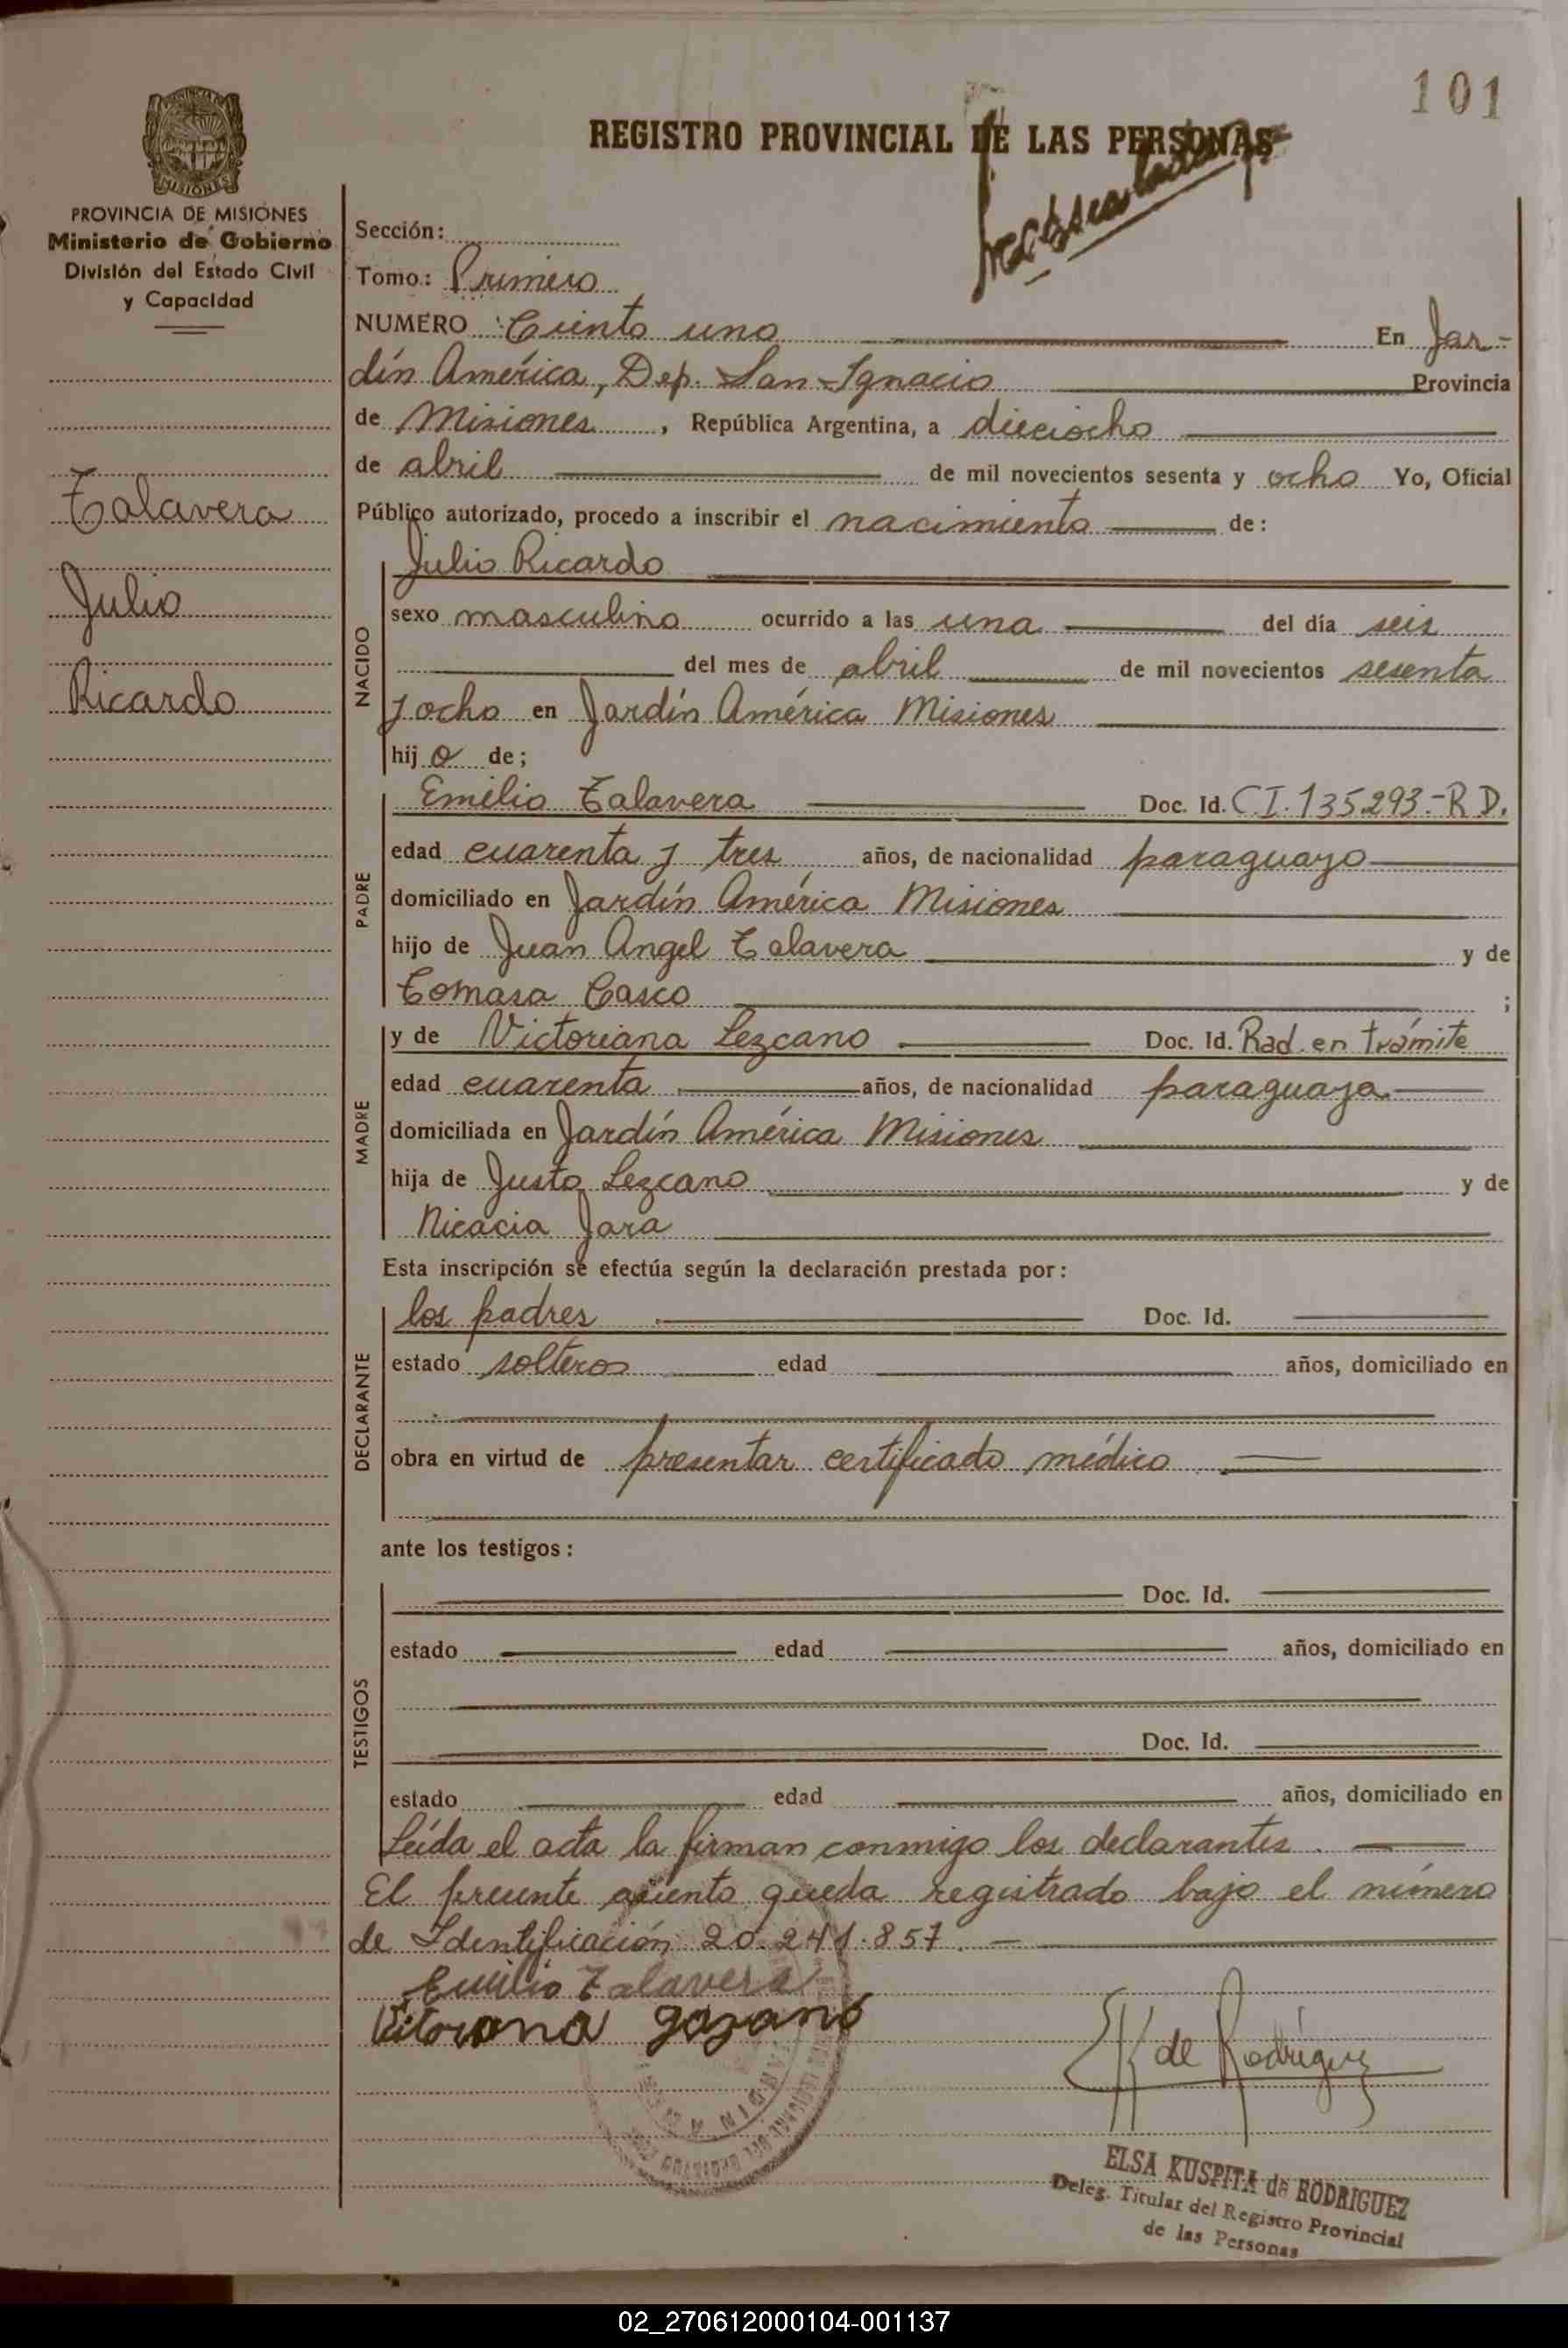 101
REGISTRO PROVINCIAL DE LAS PERSONAS
PROVINCIA DE MISIONES
Ministerio de Gobierno
División del Estado Civil
y Capacidad
Talavera
Julio
Ricardo
Sección:
Tomo: Primero
NUMERO Ciento uno En Jar-
dín América, Dep. San Ignacio Provincia
de Misiones, República Argentina, a dieciocho
de abril de mil novecientos sesenta y ocho Yo, Oficial
Público autorizado, procedo a inscribir el nacimiento de:
NACIDO
Julio Ricardo
sexo masculino ocurrido a las una del día seis
del mes de abril de mil novecientos sesenta
y ocho en Jardín América Misiones
hijo de;
PADRE
Emilio Talavera Doc. Id. C I. 135.293.- R D.
edad cuarenta y tres años, de nacionalidad paraguayo
domiciliado en Jardín América Misiones
hijo de Juan Angel Talavera y de
Tomasa Casco ;
MADRE
y de Victoriana Lezcano Doc. Id. Rad. en trámite
edad cuarenta años, de nacionalidad paraguaya
domiciliada en Jardín América Misiones
hija de Justo Lezcano y de
Nicacia Jara
Esta inscripción se efectúa según la declaración prestada por:
DECLARANTE
los padres Doc. Id.
estado solteros edad años, domiciliado en
obra en virtud de presentar certificado médico
ante los testigos:
TESTIGOS
Doc. Id.
estado edad años, domiciliado en
Doc. Id.
estado edad años, domiciliado en
Leída el acta la firman conmigo los declarantes.
El presente asiento queda registrado bajo el número
de Identificación 20.241.857.
Emilio Talavera
EK de Rodríguez
ELSA KUSPITA de RODRIGUEZ
Deleg. Titular del Registro Provincial
de las Personas
02_270612000104-001137